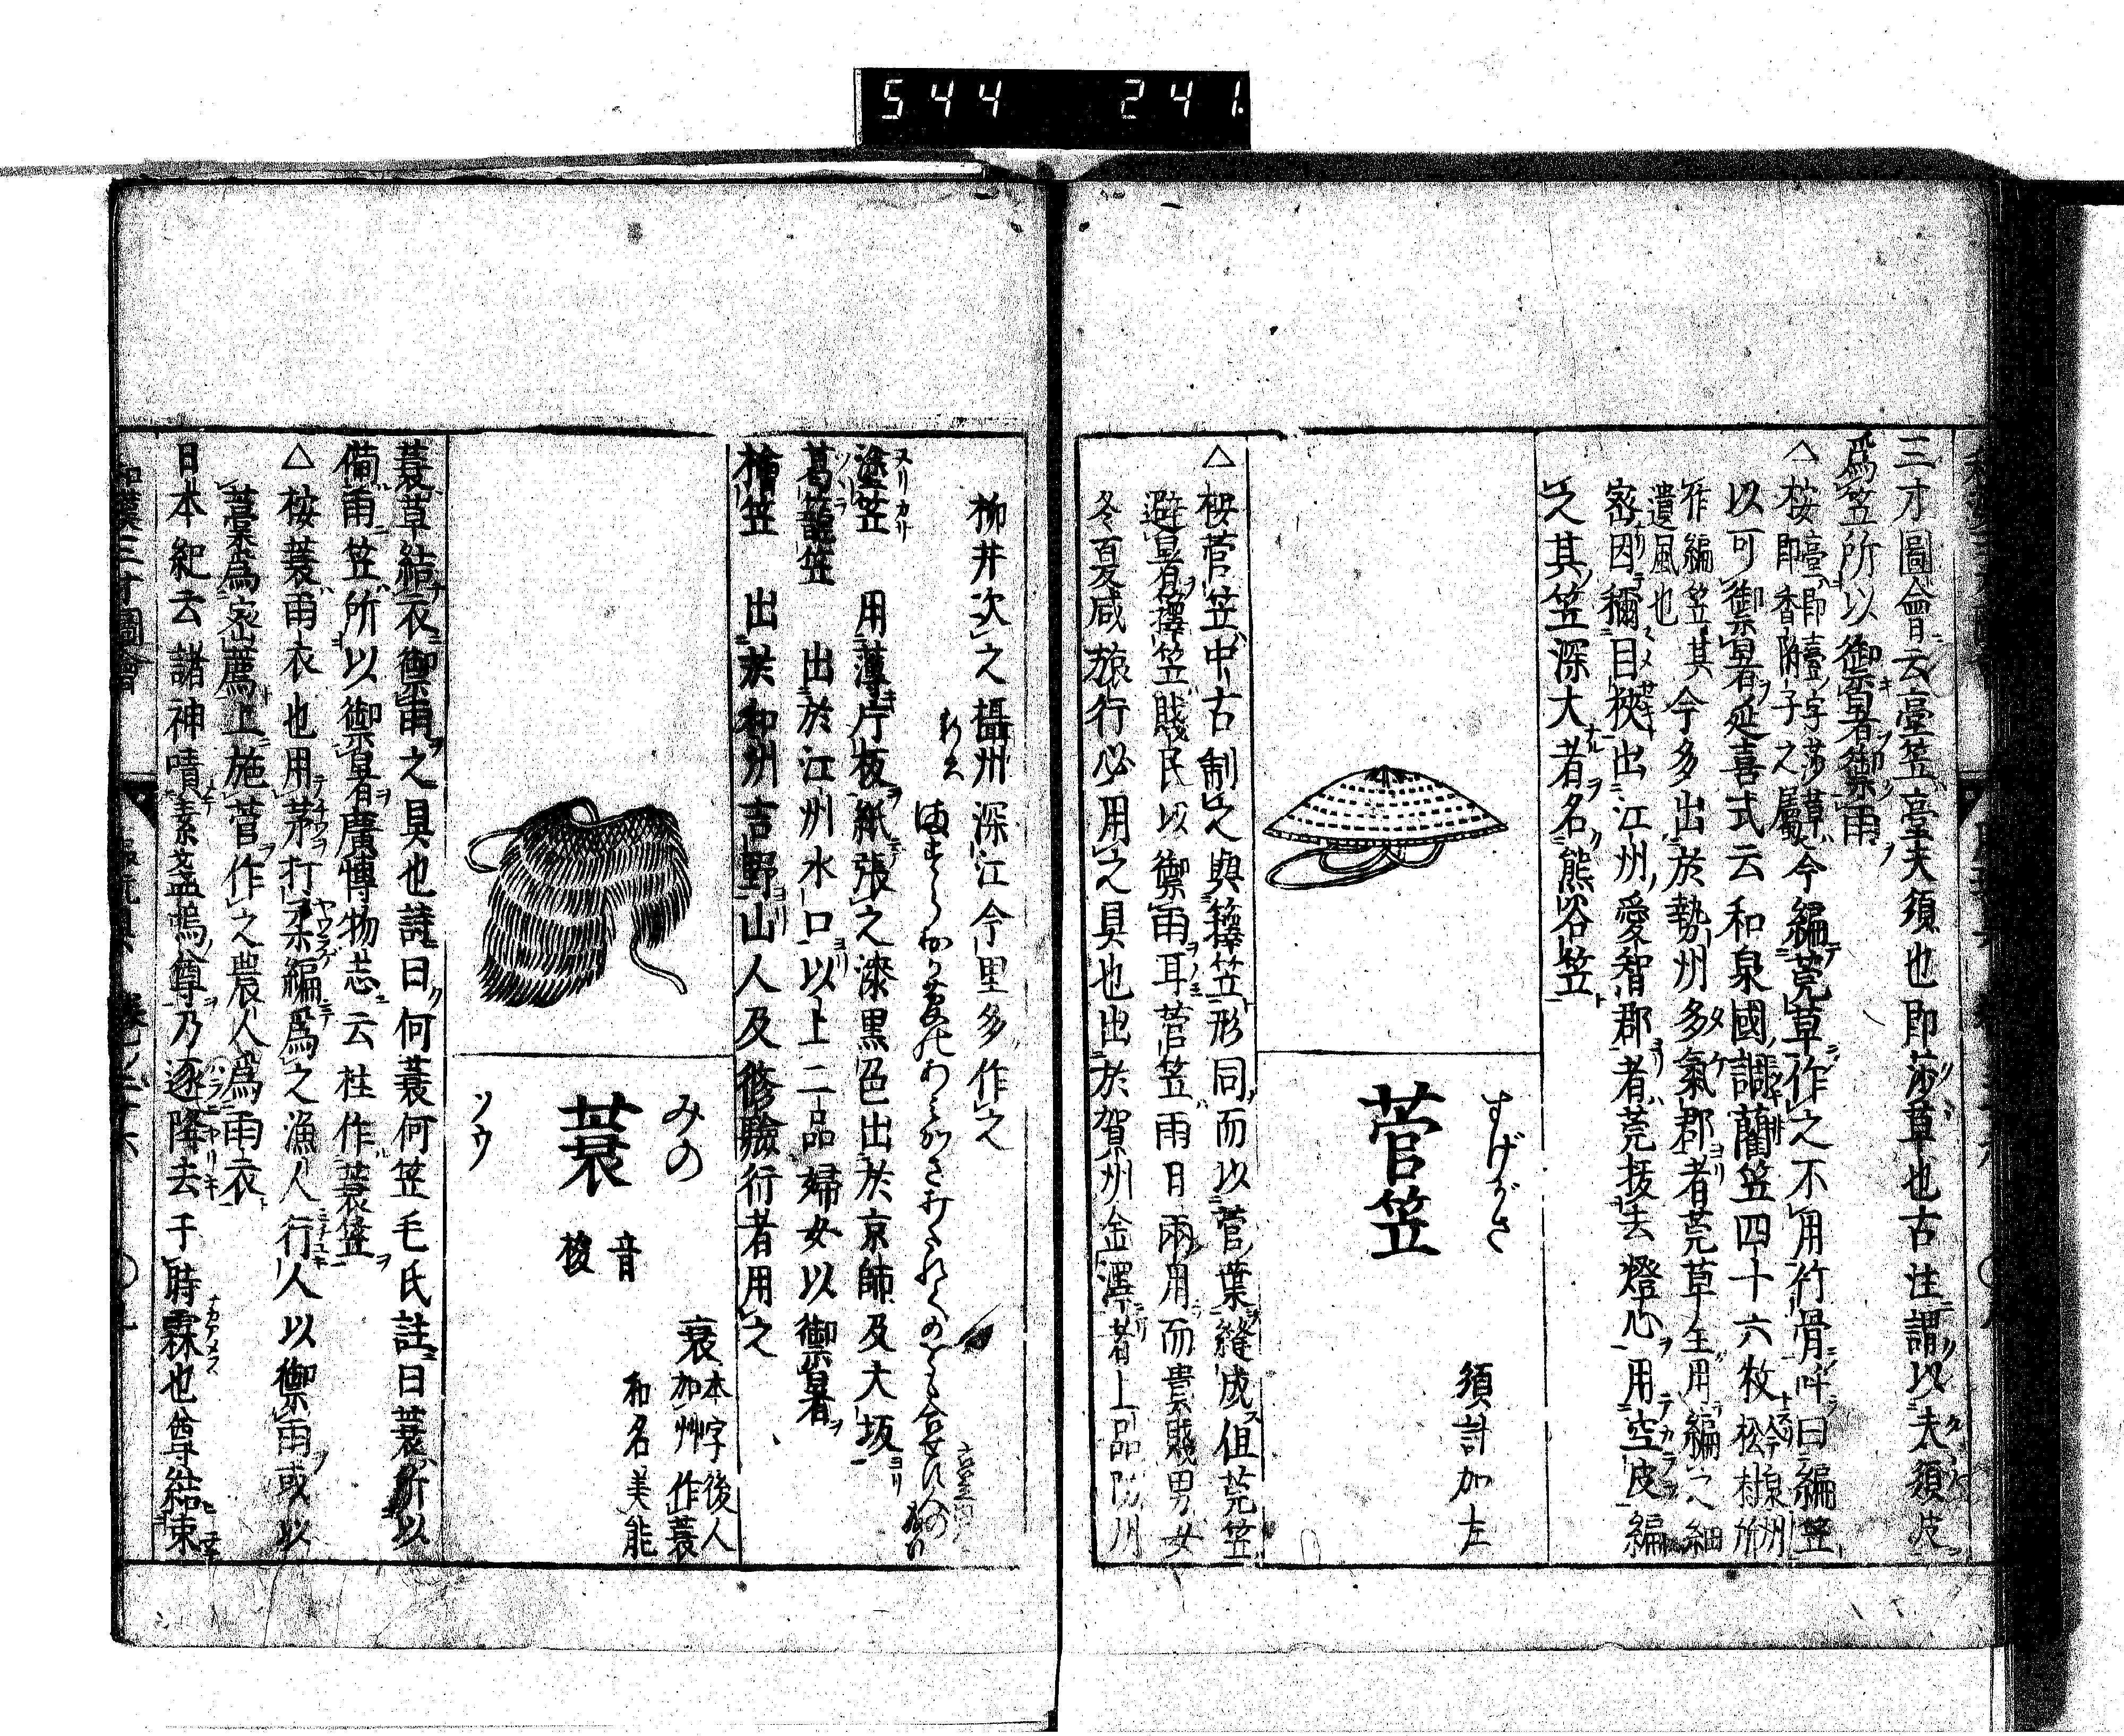 544 241.
三才圖會云臺笠臺夫須也即莎草也古注謂以夫須皮
爲笠所以御暑御雨
△桉臺即薹字莎草
即香附子之屬今編莞草作之不用竹骨呼曰編笠
以可禦暑延喜式云和泉國調藺笠四十六枚今泉州
松村所
作編笠其
遺風也今多出於勢州多氣郡者莞草全用編之細
密因穪目狹出江州愛智郡者莞拔去燈心用空皮編
之其笠深大者名熊谷笠
すげがさ
菅笠
須計加左
△桉菅笠中古制之與籜笠形同而以菅葉縫成但莞笠
避暑籜笠賤民以禦雨耳菅笠雨日兩用而貴賤男女
冬夏咸旅行必用之具也出於賀州金澤者上品防州
柳井次之攝州深江今里多作之
塗笠 用薄片板紙張之漆黑色出於京師及大坂
ヌリカサ
葛籠笠 出於江州水口以上二品婦女以禦暑
ツヽラ
檜笠 出於和州吉野山人及修驗行者用之
みの
蓑
音
梭
ソウ
衰本字後人
加艸作蓑
和名美能
蓑草結衣禦雨之具也詩曰何蓑何笠毛氏註曰蓑所以
備雨笠所以禦暑廣博物志云杜作蓑笠
△桉蓑雨衣也用茅打柔編爲之漁人行人以禦雨或以
藁爲密薦上施菅作之農人爲雨衣
日本紀云諸神嘖素盞嗚尊乃逐降去于時霖也尊結束
和漢三才圖會